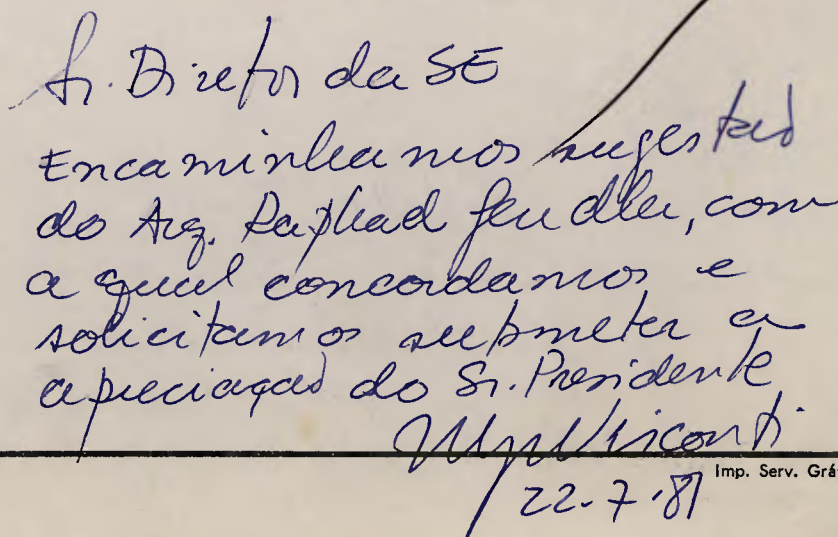 Sr. Diretor da SE
Encaminhamos sugestão
do Arq. Raphael Gendler, com
a qual concordamos e
solicitamos submeter a
apreciação do Sr. Presidente
Visconti
Imp. Serv. Grá
22-7-81